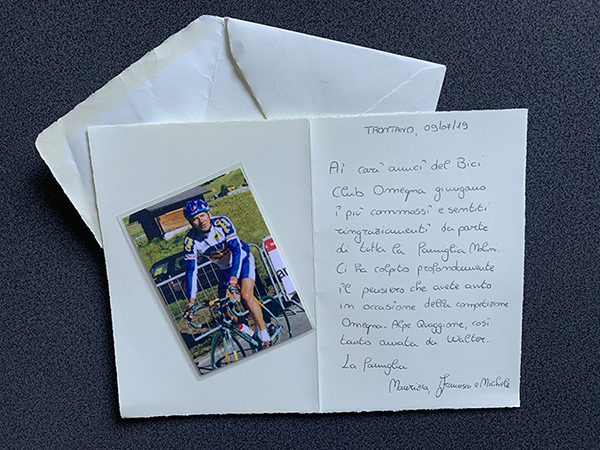 TRONTANO, 09/07/19
Ai cari amici del Bici
Club Omegna giungano
i più commossi e sentiti
ringraziamenti da parte
di tutta la famiglia Molini.
Ci ha colpito profondamente
il pensiero che avete avuto
in occasione della competizione
Omegna-Alpe Quaggione, così
tanto amata da Walter.
La famiglia
Maurizia, Francesco e Michele